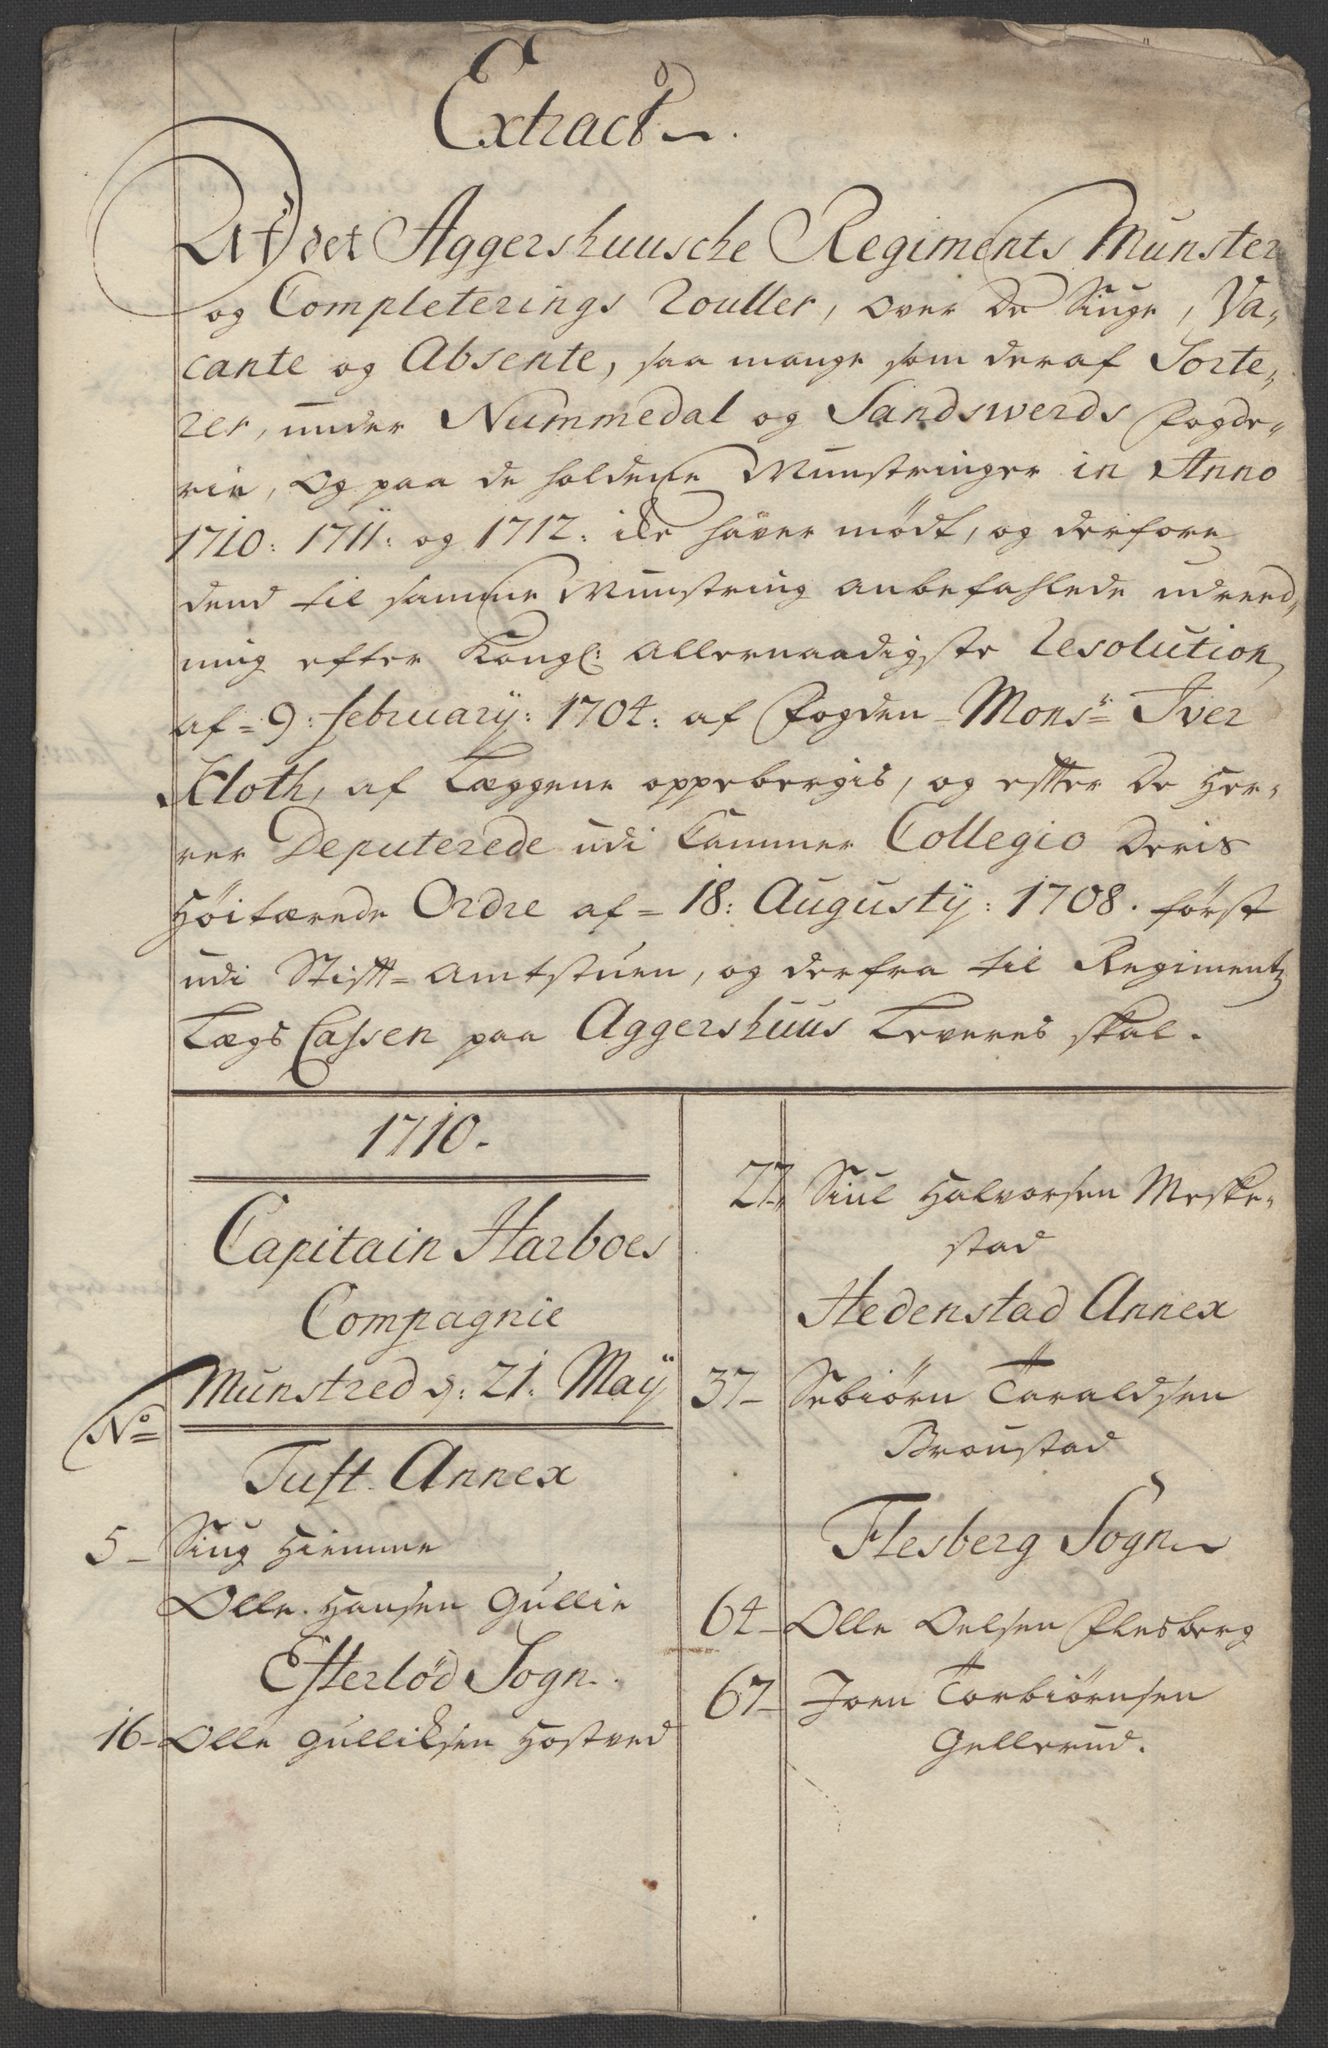 Extract
Af det Aggershuusche Regiments Munster
og Completerings Rouller, over de Siuge, Va-
cante og Absente, saa mange som deraf Sorte-
rer, under Nummedal og Sandswerds Fogde-
rie, og paa de holdene Munstringer in Anno
1710: 1711: og 1712: iche haver mødt, og derfore
dend til samme Munstring anbefahlede udreed-
ning efter Kongl: allernaadigste Resolution
af = 9: february: 1704: af Fogden Monsr: Iver
Kloth, af Læggene oppebergis, og effter de Her-
rer Deputerede udi Cammer Collegio deris
Høitærede Ordre af = 18: Augusty: 1708. først
udi Stifft=Amtstuen, og derfra til Regimentz
Lægs Cassen paa Aggershuus Leveres skal.
1710.
Capitain Harboes
Compagnie
Munstred d: 21: Maÿ
No
Tuft Annex
5- Siug Hiemme
Olle Hansen Gullie
Efterlød Sogn.
16- Olle Gulliksen Hostved
27, Siul Halvorsen Meske-
stad
Hedenstad Annex
37- Sebiørn Taraldsen
Broustad
Flesberg Sogn
64- Olle Oelsen Flesberg
67- Joen Torbiørnsen
Gellerud.